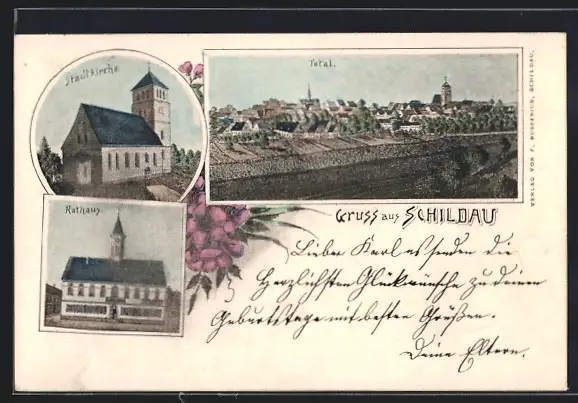 Stadtkirche.
Total.
Rathaus.
Gruss aus SCHILDAU
Lieber Karl es senden die
Herzlichsten Glückwünsche zu deinem
Geburtstage mit besten Grüßen.
Deine Eltern.
VERLAG VON F. SCHILDAU.